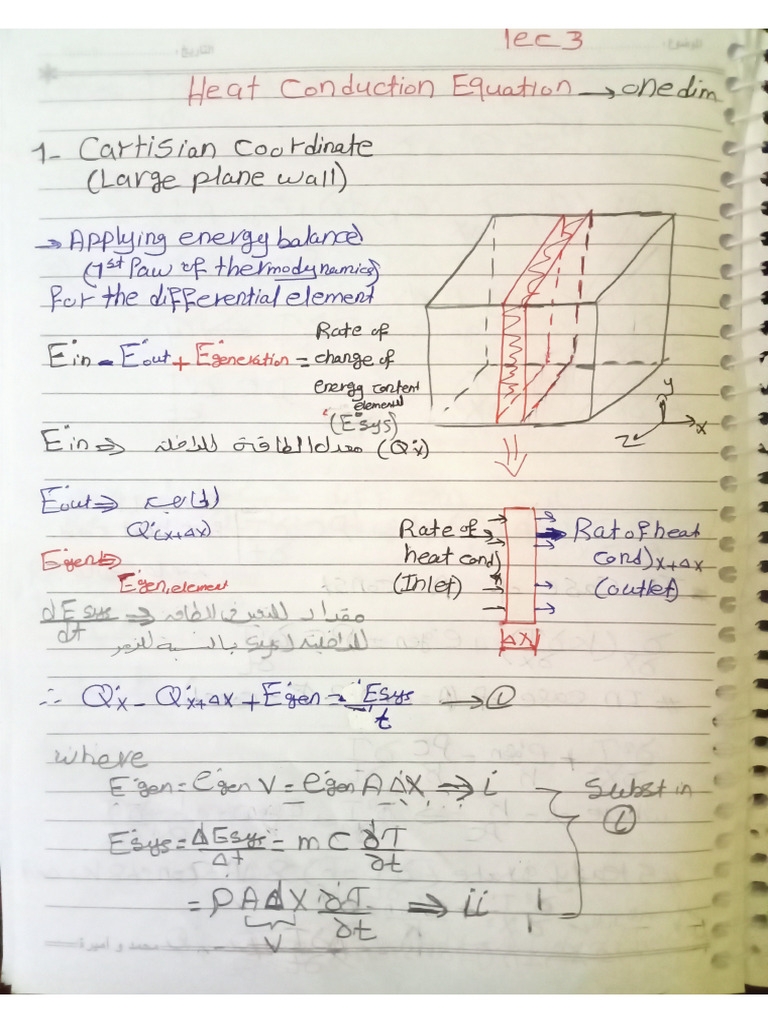 الموضوع:
التاريخ:
lec 3
Heat Conduction Equation → one dim
1- Cartisian coordinate
(Large plane wall)
→ Applying energy balance
(1st law of thermodynamics)
for the differential element
Ėin - Ėout + Ėgeneration = Rate of
change of
energy content
element
(Ėsys)
y
x
z
Ėin ⇒ معدل الطاقة الداخلة (Q̇x)
Ėout ⇒
Q̇(x+Δx)
Ėgen ⇒
Ėgen,element
dEsys/dt ⇒ مقدار التغير في الطاقة
الداخلية لـ sys بالنسبة للزمن
Rate of
heat cond)
(Inlet)
Rat of heat
cond)x+Δx
(outlet)
ΔX
∴ Q̇x - Q̇x+Δx + Ėgen = Ėsys/t → ①
where
Ėgen = ėgen V = ėgen A ΔX ⇒ i
Subst in
①
Ėsys = ΔEsys/Δt = m C ∂T/∂t
= ρ A Δ X ∂T/∂t ⇒ ii
V